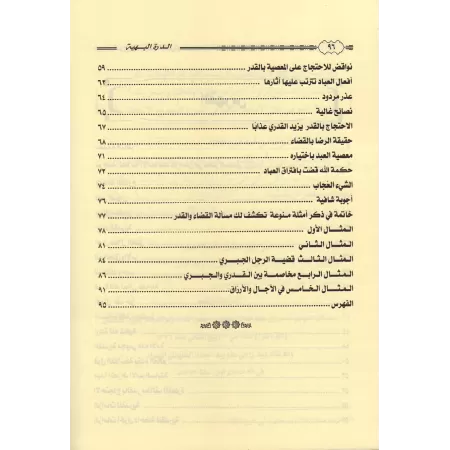 ٩٦ الـدرة البـهـيـة
نواقض للاحتجاج على المعصية بالقدر ٥٩
أفعال العباد تترتب عليها آثارها ٦٢
عذر مردود ٦٤
نصائح غالية ٦٥
الاحتجاج بالقدر يزيد القدري عذابا ٦٧
حقيقة الرضا بالقضاء ٦٨
معصية العبد باختياره ٧١
حكمة الله قضت بافتراق العباد ٧٣
الشيء العجاب ٧٤
أجوبة شافية ٧٦
خاتمة في ذكر أمثلة منوعة تكشف لك مسألة القضاء والقدر ٧٧
المثـــال الأول ٧٨
المثـــال الثـــاني ٨١
المثـــال الثـالـث قضيـة الرجل الجبـري ٨٤
المثـال الرابـع مخاصمة بين القـدري والجبـري ٨٦
المثـال الخـامس في الآجال والأرزاق ٩١
الفهرس ٩٥